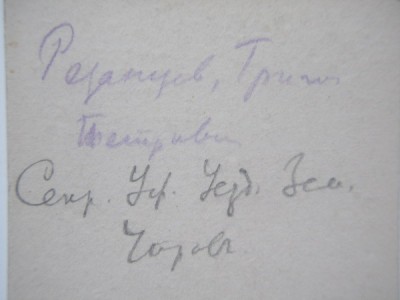 Рязанцов, Григор
Петрович
Секр. Уф. Уезд. Зем.
Управ